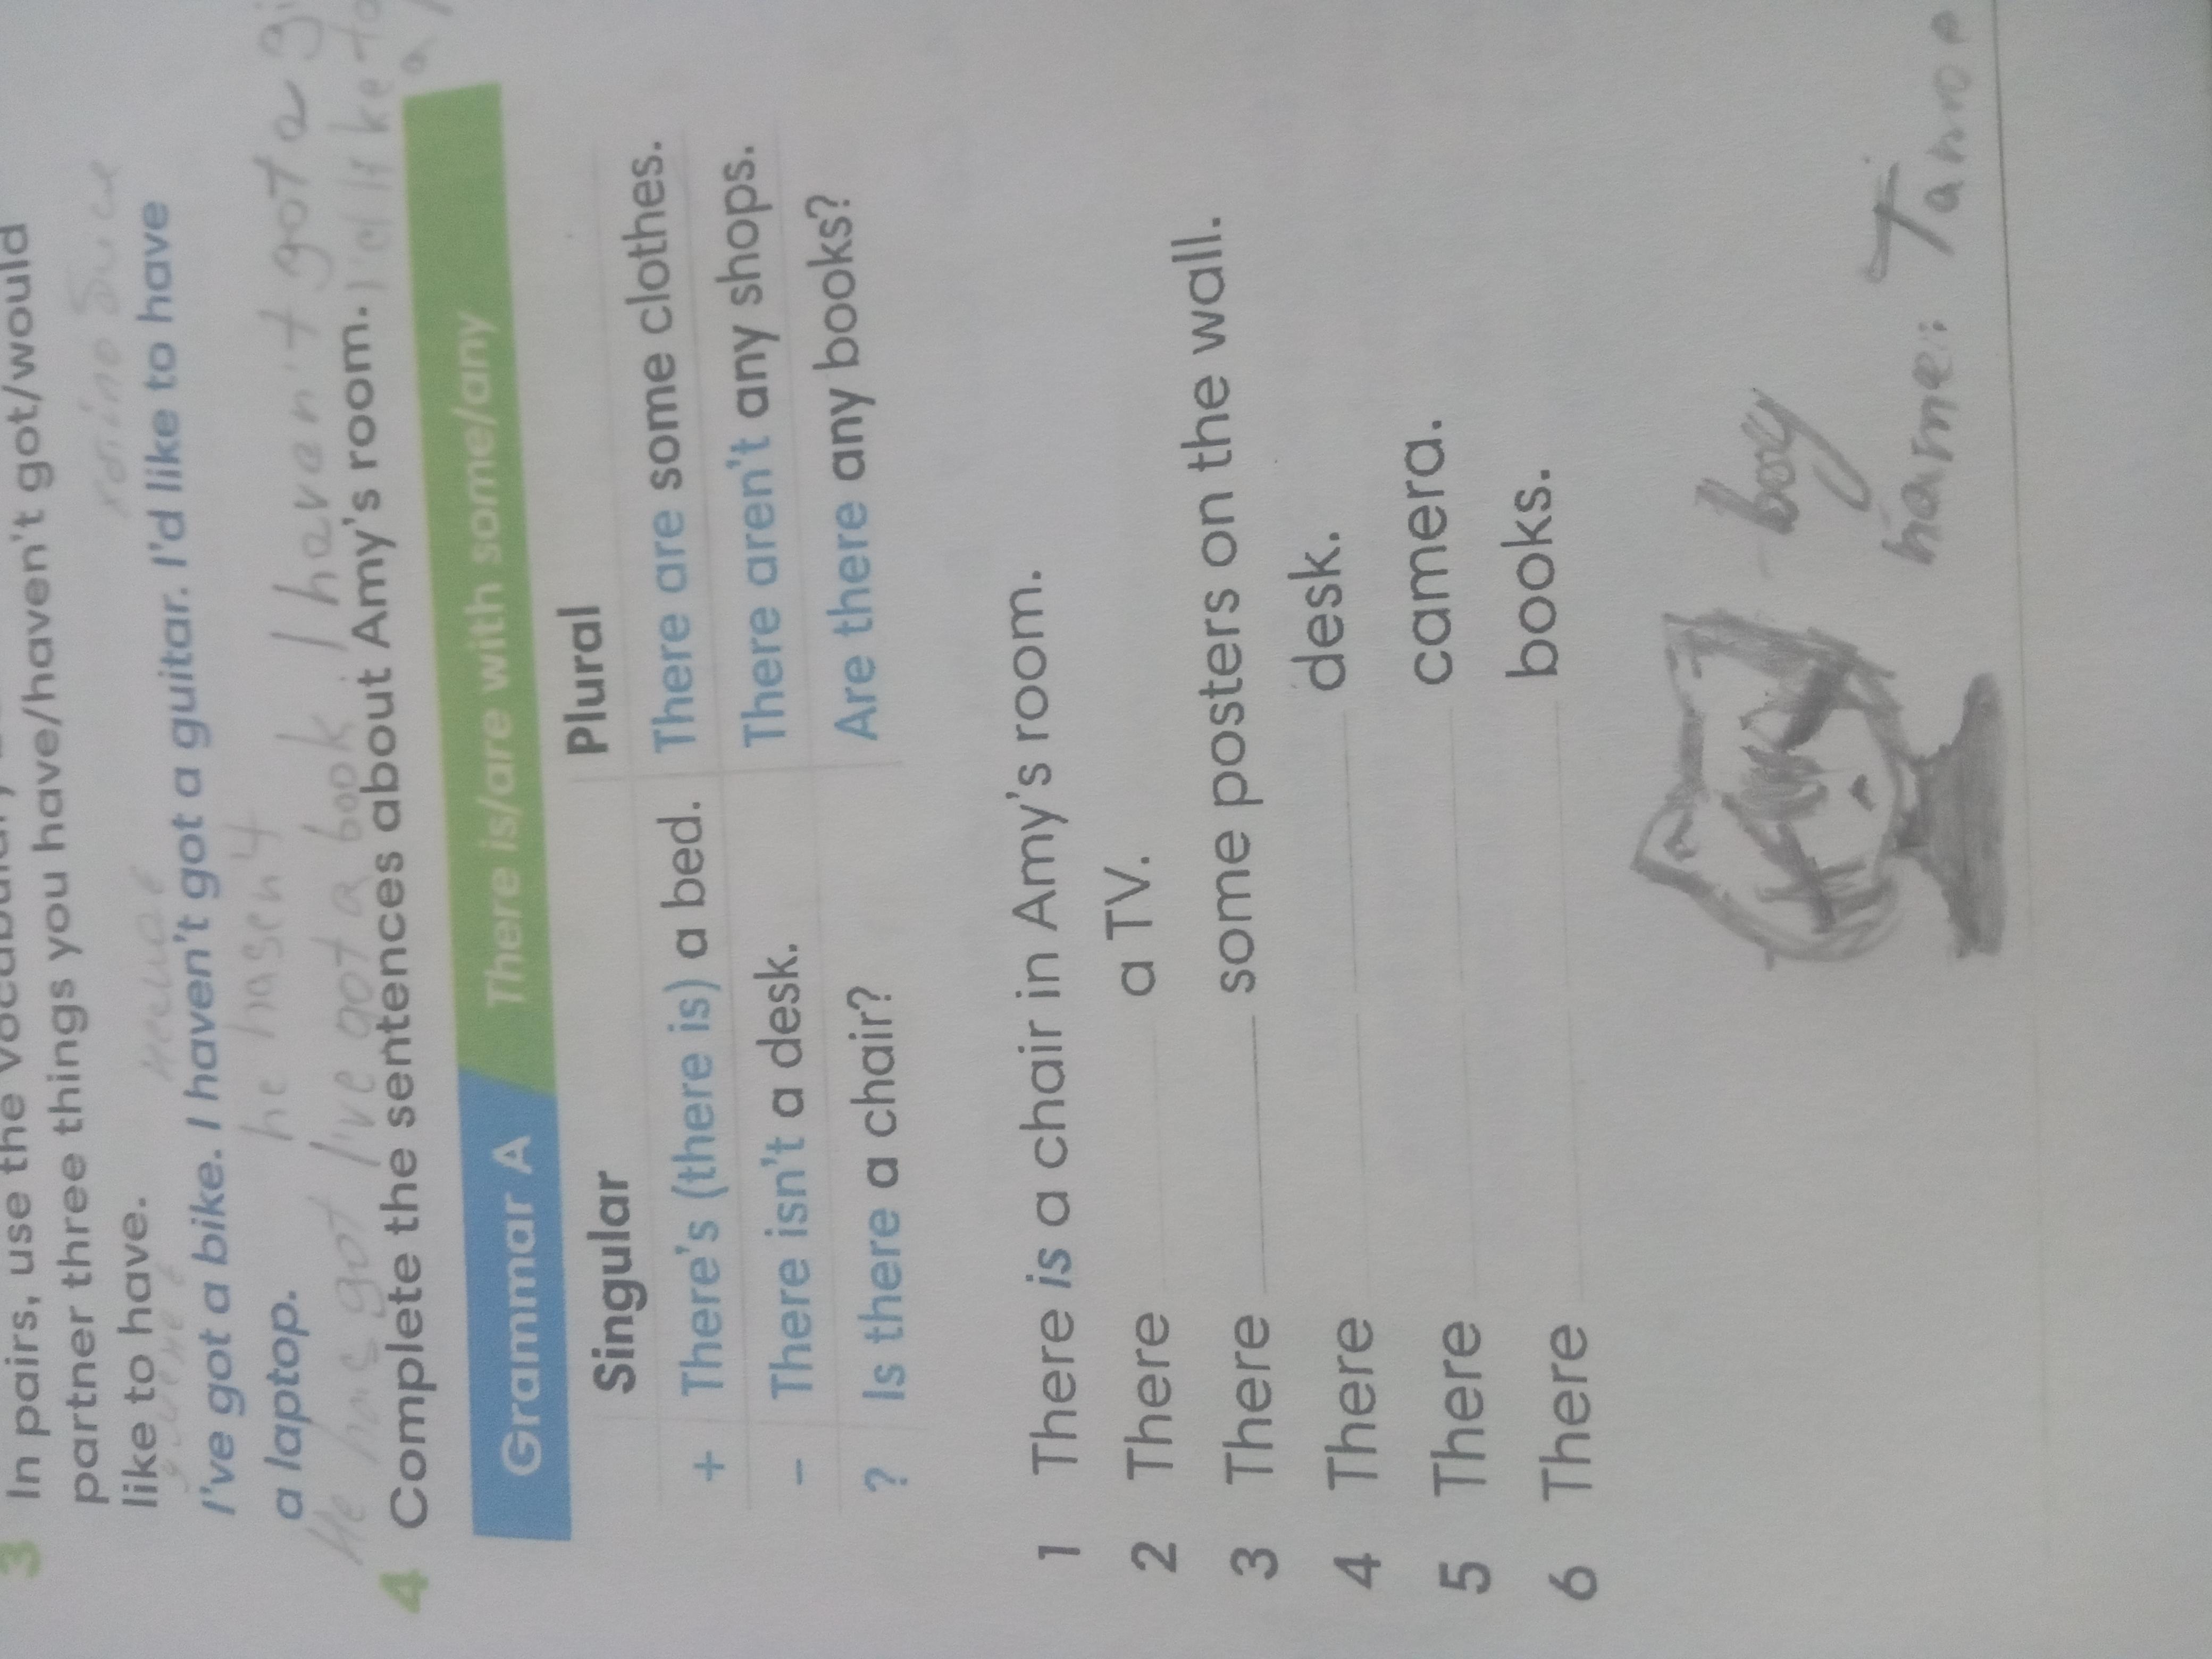 3 In pairs, use the
partner three things you have/haven't got/would
like to have.
I've got a bike. I haven't got a guitar. I'd like to have
a laptop.
he hasen4
He has got I've got a book I haven't got a
I'd like to
a
4 Complete the sentences about Amy's room.
Grammar A There is/are with some/any
Singular Plural
+ There's (there is) a bed. There are some clothes.
- There isn't a desk. There aren't any shops.
? Is there a chair? Are there any books?
1 There is a chair in Amy's room.
2 There a TV.
3 There some posters on the wall.
4 There desk.
5 There camera.
6 There books.
boy
name: